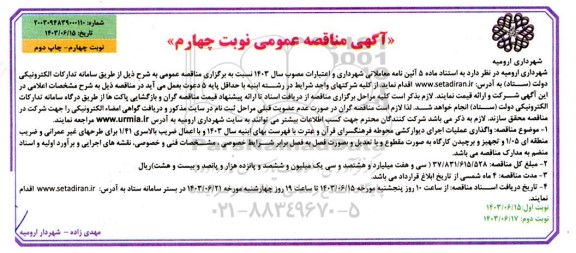 شماره: ۲۰۰۳۰۹۴۸۳۹۰۰۰۱۱۰
تاریخ: ۱۴۰۳/۰۶/۱۵
نوبت چهارم- چاپ دوم
«آگهی مناقصه عمومی نوبت چهارم»
شهرداری ارومیه
شهرداری ارومیه در نظر دارد به استناد ماده ۵ آئین نامه معاملاتی شهرداری و اعتبارات مصوب سال ۱۴۰۳ نسبت به برگزاری مناقصه عمومی به شرح ذیل از طریق سامانه تدارکات الکترونیکی
دولت (ستاد) به آدرس www.setadiran.ir اقدام نماید. از کلیه شرکتهای واجد شرایط در رشته ابنیه با حداقل پایه ۵ دعوت بعمل می آید در مناقصه ذیل به شرح مشخصات اعلامی در
این آگهی شرکت و ارائه قیمت نمایند. لازم بذکر است کلیه مراحل برگزاری مناقصه از دریافت اسناد تا ارائه پیشنهاد قیمت مناقصه گران و بازگشایی پاکت ها از طریق درگاه سامانه تدارکات
الکترونیکی دولت (ستاد) انجام خواهد شد. لذا لازم است مناقصه گران در صورت عدم عضویت قبلی مراحل ثبت نام در سایت مذکور و دریافت گواهی امضاء الکترونیکی را جهت شرکت در
مناقصه محقق سازند. لازم به ذکر می باشد شرکت کنندگان محترم جهت کسب اطلاعات بیشتر می توانند به سایت شهرداری ارومیه به آدرس www.urmia.ir مراجعه نمایند.
۱- موضوع مناقصه: واگذاری عملیات اجرای دیوارکشی محوطه فرهنگسرای قرآن و عترت با فهرست بهای ابنیه سال ۱۴۰۳ و با اعمال ضریب بالاسری ۱/۴۱ برای طرحهای غیر عمرانی و ضریب
منطقه ای ۱/۰۵ و تجهیز و برچیدن کارگاه به صورت مقطوع و با تعدیل و بصورت فصل به فصل برابر شرایط خصوصی، مشخصات فنی و خصوصی، نقشه های اجرایی و برآورد اولیه و اسناد
منضم به مدارک مناقصه می باشد.
۲- مبلغ کل مناقصه: ۳۷/۸۳۱/۶۱۵/۵۲۸ ( سی و هفت میلیارد و هشتصد و سی یک میلیون و ششصد و پانزده هزار و پانصد و بیست و هشت)ریال
۳- مدت مناقصه: ۴ ماه شمسی از تاریخ ابلاغ قرارداد می باشد.
۴- تاریخ دریافت اسناد مناقصه: از ساعت ۱۰ روز پنجشنبه مورخه ۱۴۰۳/۰۶/۱۵ تا ساعت ۱۹ روز چهارشنبه مورخه ۱۴۰۳/۰۶/۲۱ در بستر سامانه ستاد به آدرس: www.setadiran.ir اقدام
نمایند.
نوبت اول: ۱۴۰۳/۰۶/۱۵
نوبت دوم: ۱۴۰۳/۰۶/۱۷
۰۲۱-۸۸۳۴۹۶۷۰-۵
مهدی زاده - شهردار ارومیه